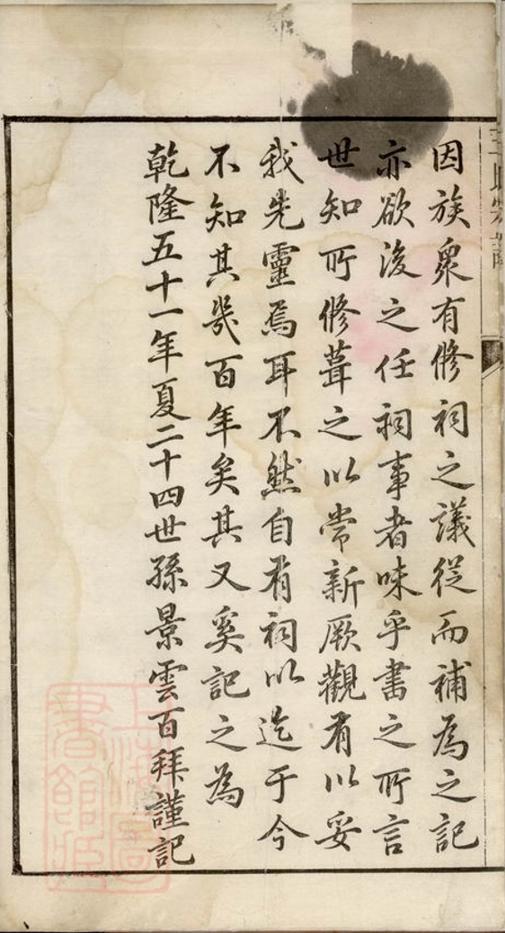 因族衆有修祠之議從而補為之記
亦欲後之任祠事者味乎書之所言
世知所修葺之以常新厥觀有以妥
我先靈焉耳不然自有祠以迄于今
不知其幾百年矣其又奚記之為
乾隆五十一年夏二十四世孫景雲百拜謹記
上海圖書館藏